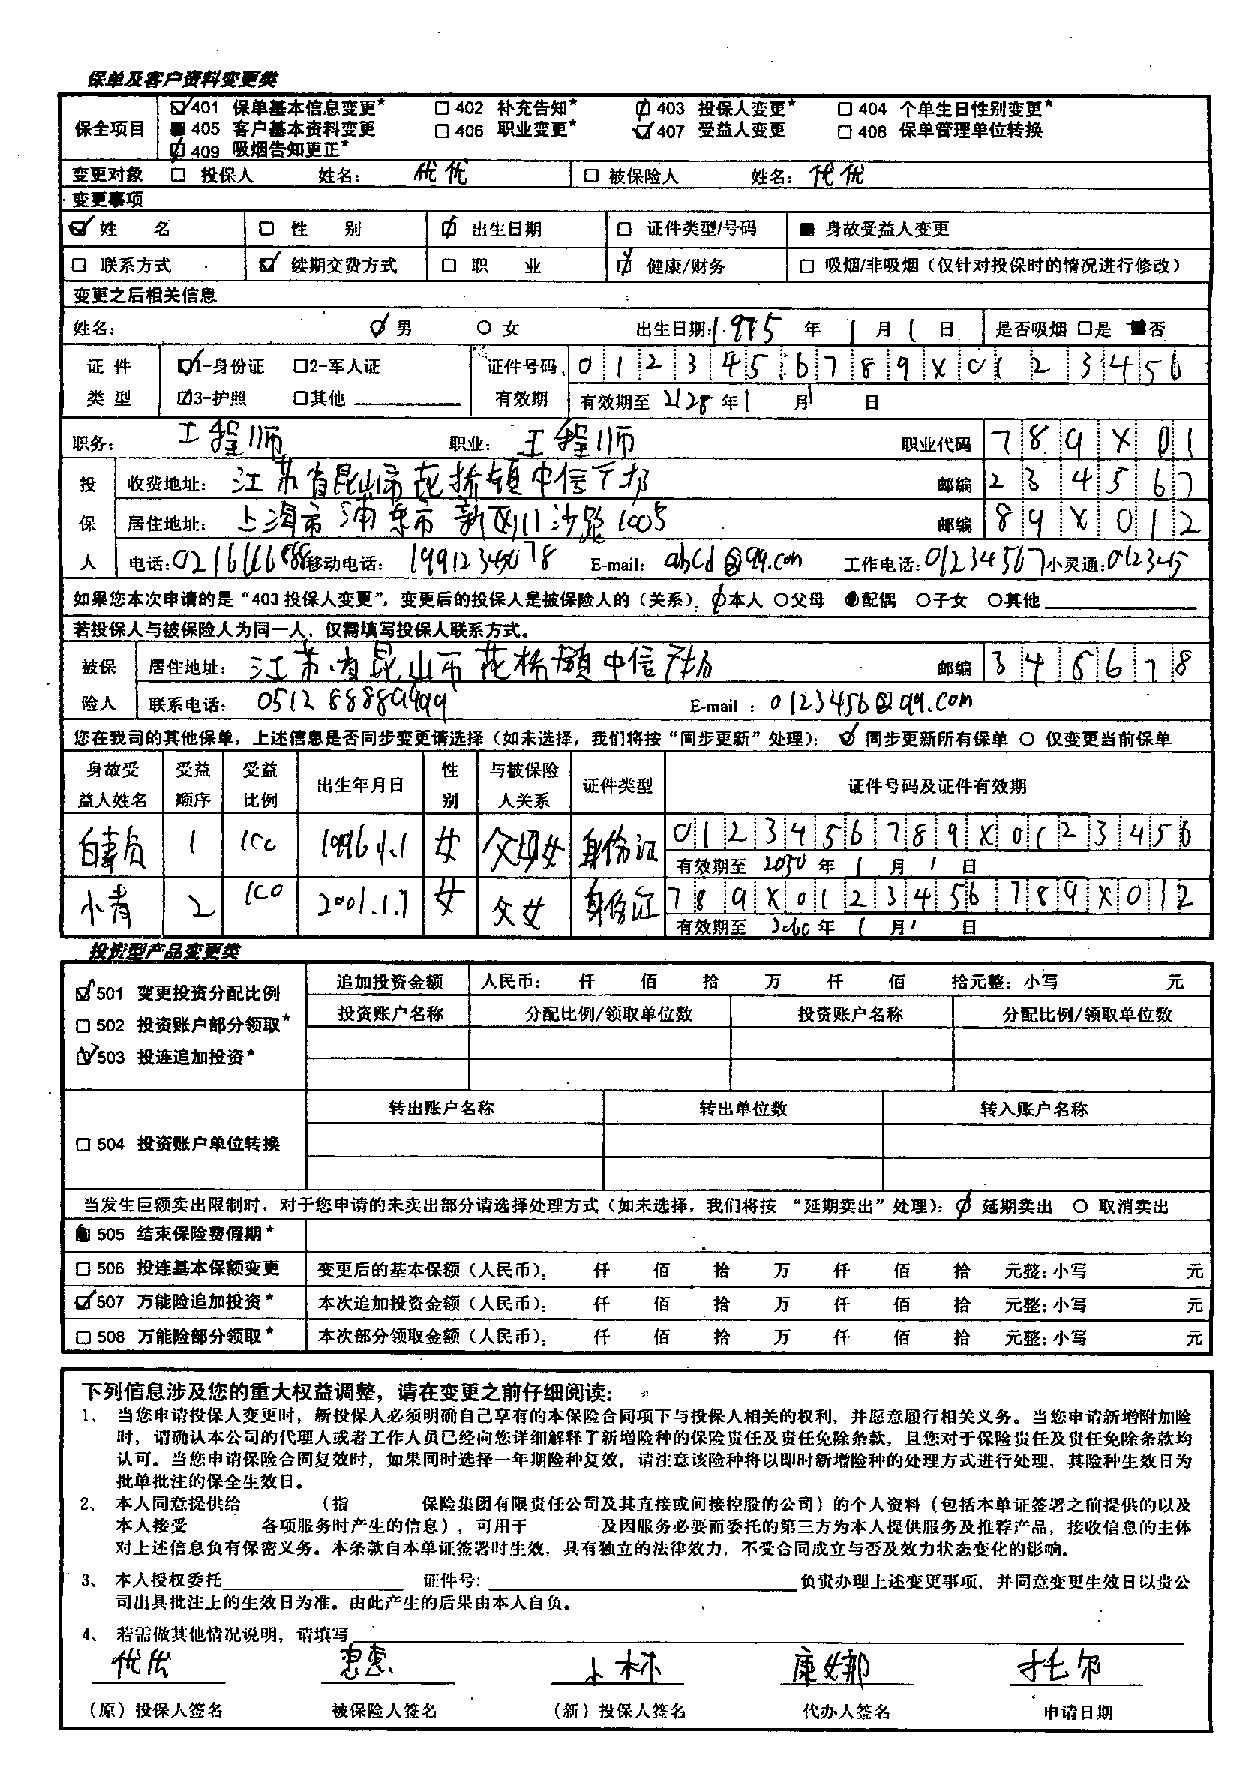 保单及客户资料变更类
保全项目 401 保单基本信息变更* 402 补充告知* 403 投保人变更* 404 个单生日性别变更*
405 客户基本资料变更 406 职业变更* 407 受益人变更 408 保单管理单位转换
409 吸烟告知更正*
变更对象 投保人 姓名: 优优 被保险人 姓名: 优优
变更事项
姓 名 性 别 出生日期 证件类型/号码 身故受益人变更
联系方式 续期交费方式 职 业 健康/财务 吸烟/非吸烟(仅针对投保时的情况进行修改)
变更之后相关信息
姓名: 男 女 出生日期: 1985 年 1 月 1 日 是否吸烟 是 否
证件 1-身份证 2-军人证 证件号码 0123456789X0123456
类型 3-护照 其他 有效期 有效期至 2128 年 1 月 1 日
职务: 工程师 职业: 工程师 职业代码 789X01
投 收费地址: 江苏省昆山市花桥镇中信 邮编 234567
保 居住地址: 上海市浦东市新区川沙路1005 邮编 89X012
人 电话: 移动电话: E-mail: abcd@qq.com 工作电话: 01234567 小灵通: 012345
如果您本次申请的是“403 投保人变更”,变更后的投保人是被保险人的(关系): 本人 父母 配偶 子女 其他
若投保人与被保险人为同一人,仅需填写投保人联系方式。
被保 居住地址: 江苏省昆山市花桥镇中信 邮编 345678
险人 联系电话: 0512 E-mail : 0123456@qq.com
您在我司的其他保单,上述信息是否同步变更请选择(如未选择,我们将按“同步更新”处理): 同步更新所有保单 仅变更当前保单
身故受益人姓名 受益顺序 受益比例 出生年月日 性别 与被保险人关系 证件类型 证件号码及证件有效期
白素贞 1 100 1996.1.1 女 父女 身份证 0123456789X0123456
有效期至 2050 年 1 月 1 日
小青 2 100 2001.1.7 女 父女 身份证 789X0123456789X012
有效期至 2060 年 1 月 1 日
投资型产品变更类
501 变更投资分配比例 追加投资金额 人民币: 仟 佰 拾 万 仟 佰 拾元整: 小写 元
502 投资账户部分领取* 投资账户名称 分配比例/领取单位数 投资账户名称 分配比例/领取单位数
503 投连追加投资*
504 投资账户单位转换 转出账户名称 转出单位数 转入账户名称
当发生巨额卖出限制时,对于您申请的未卖出部分请选择处理方式(如未选择,我们将按 “延期卖出”处理): 延期卖出 取消卖出
505 结束保险费假期*
506 投连基本保额变更 变更后的基本保额(人民币): 仟 佰 拾 万 仟 佰 拾 元整: 小写 元
507 万能险追加投资* 本次追加投资金额(人民币): 仟 佰 拾 万 仟 佰 拾 元整: 小写 元
508 万能险部分领取* 本次部分领取金额(人民币): 仟 佰 拾 万 仟 佰 拾 元整: 小写 元
下列信息涉及您的重大权益调整,请在变更之前仔细阅读:
1、 当您申请投保人变更时,新投保人必须明确自己享有的本保险合同项下与投保人相关的权利,并愿意履行相关义务。当您申请新增附加险
时,请确认本公司的代理人或者工作人员已经向您详细解释了新增险种的保险责任及责任免除条款,且您对于保险责任及责任免除条款均
认可。当您申请保险合同复效时,如果同时选择一年期险种复效,请注意该险种将以即时新增险种的处理方式进行处理,其险种生效日为
批单批注的保全生效日。
2、 本人同意提供给 (指 保险集团有限责任公司及其直接或间接控股的公司)的个人资料(包括本单证签署之前提供的以及
本人接受 各项服务时产生的信息),可用于 及因服务必要而委托的第三方为本人提供服务及推荐产品,接收信息的主体
对上述信息负有保密义务。本条款自本单证签署时生效,具有独立的法律效力,不受合同成立与否及效力状态变化的影响。
3、 本人授权委托 证件号: 负责办理上述变更事项,并同意变更生效日以贵公
司出具批注上的生效日为准。由此产生的后果由本人自负。
4、 若需做其他情况说明,请填写
优优 惠惠 小林 康娜 托尔
(原)投保人签名 被保险人签名 (新)投保人签名 代办人签名 申请日期